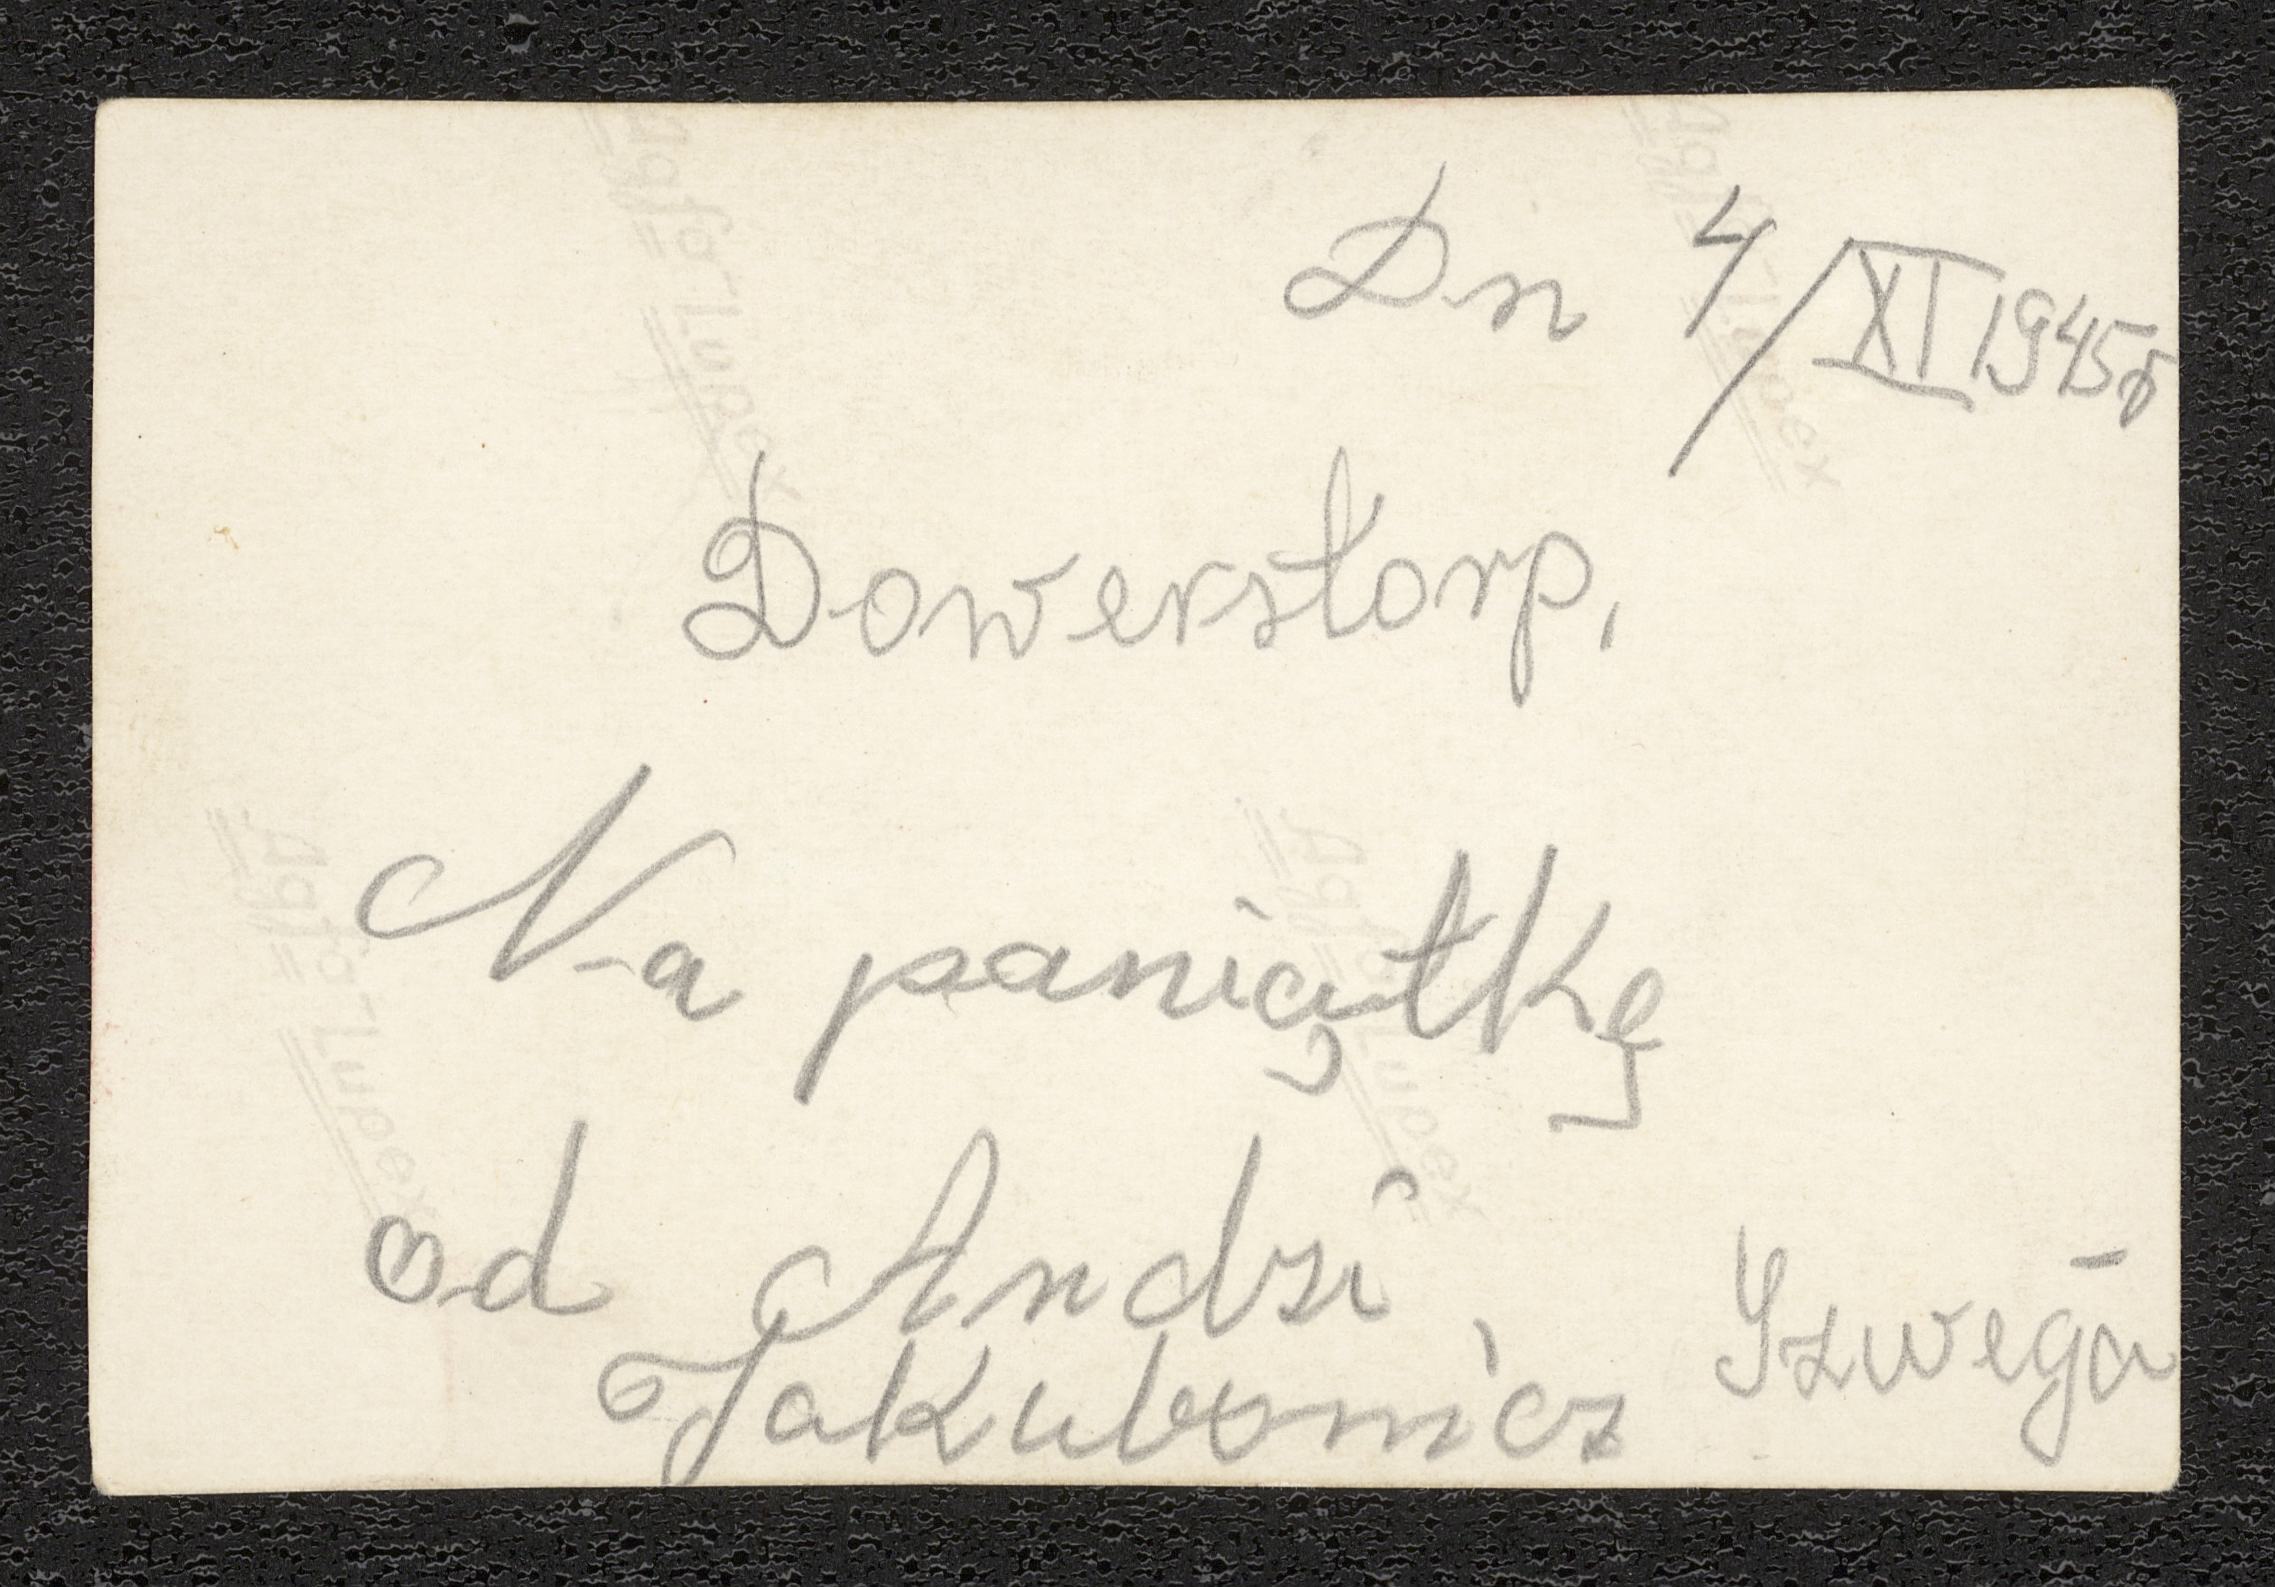 Dn 4/XI 1945r
Dowerstorp,
Na paniątkę
od Andzi
Jakubowicz
Szwega
Agfa-Lupex
Agfa-Lupex
Agfa-Lupex
Agfa-Lupex